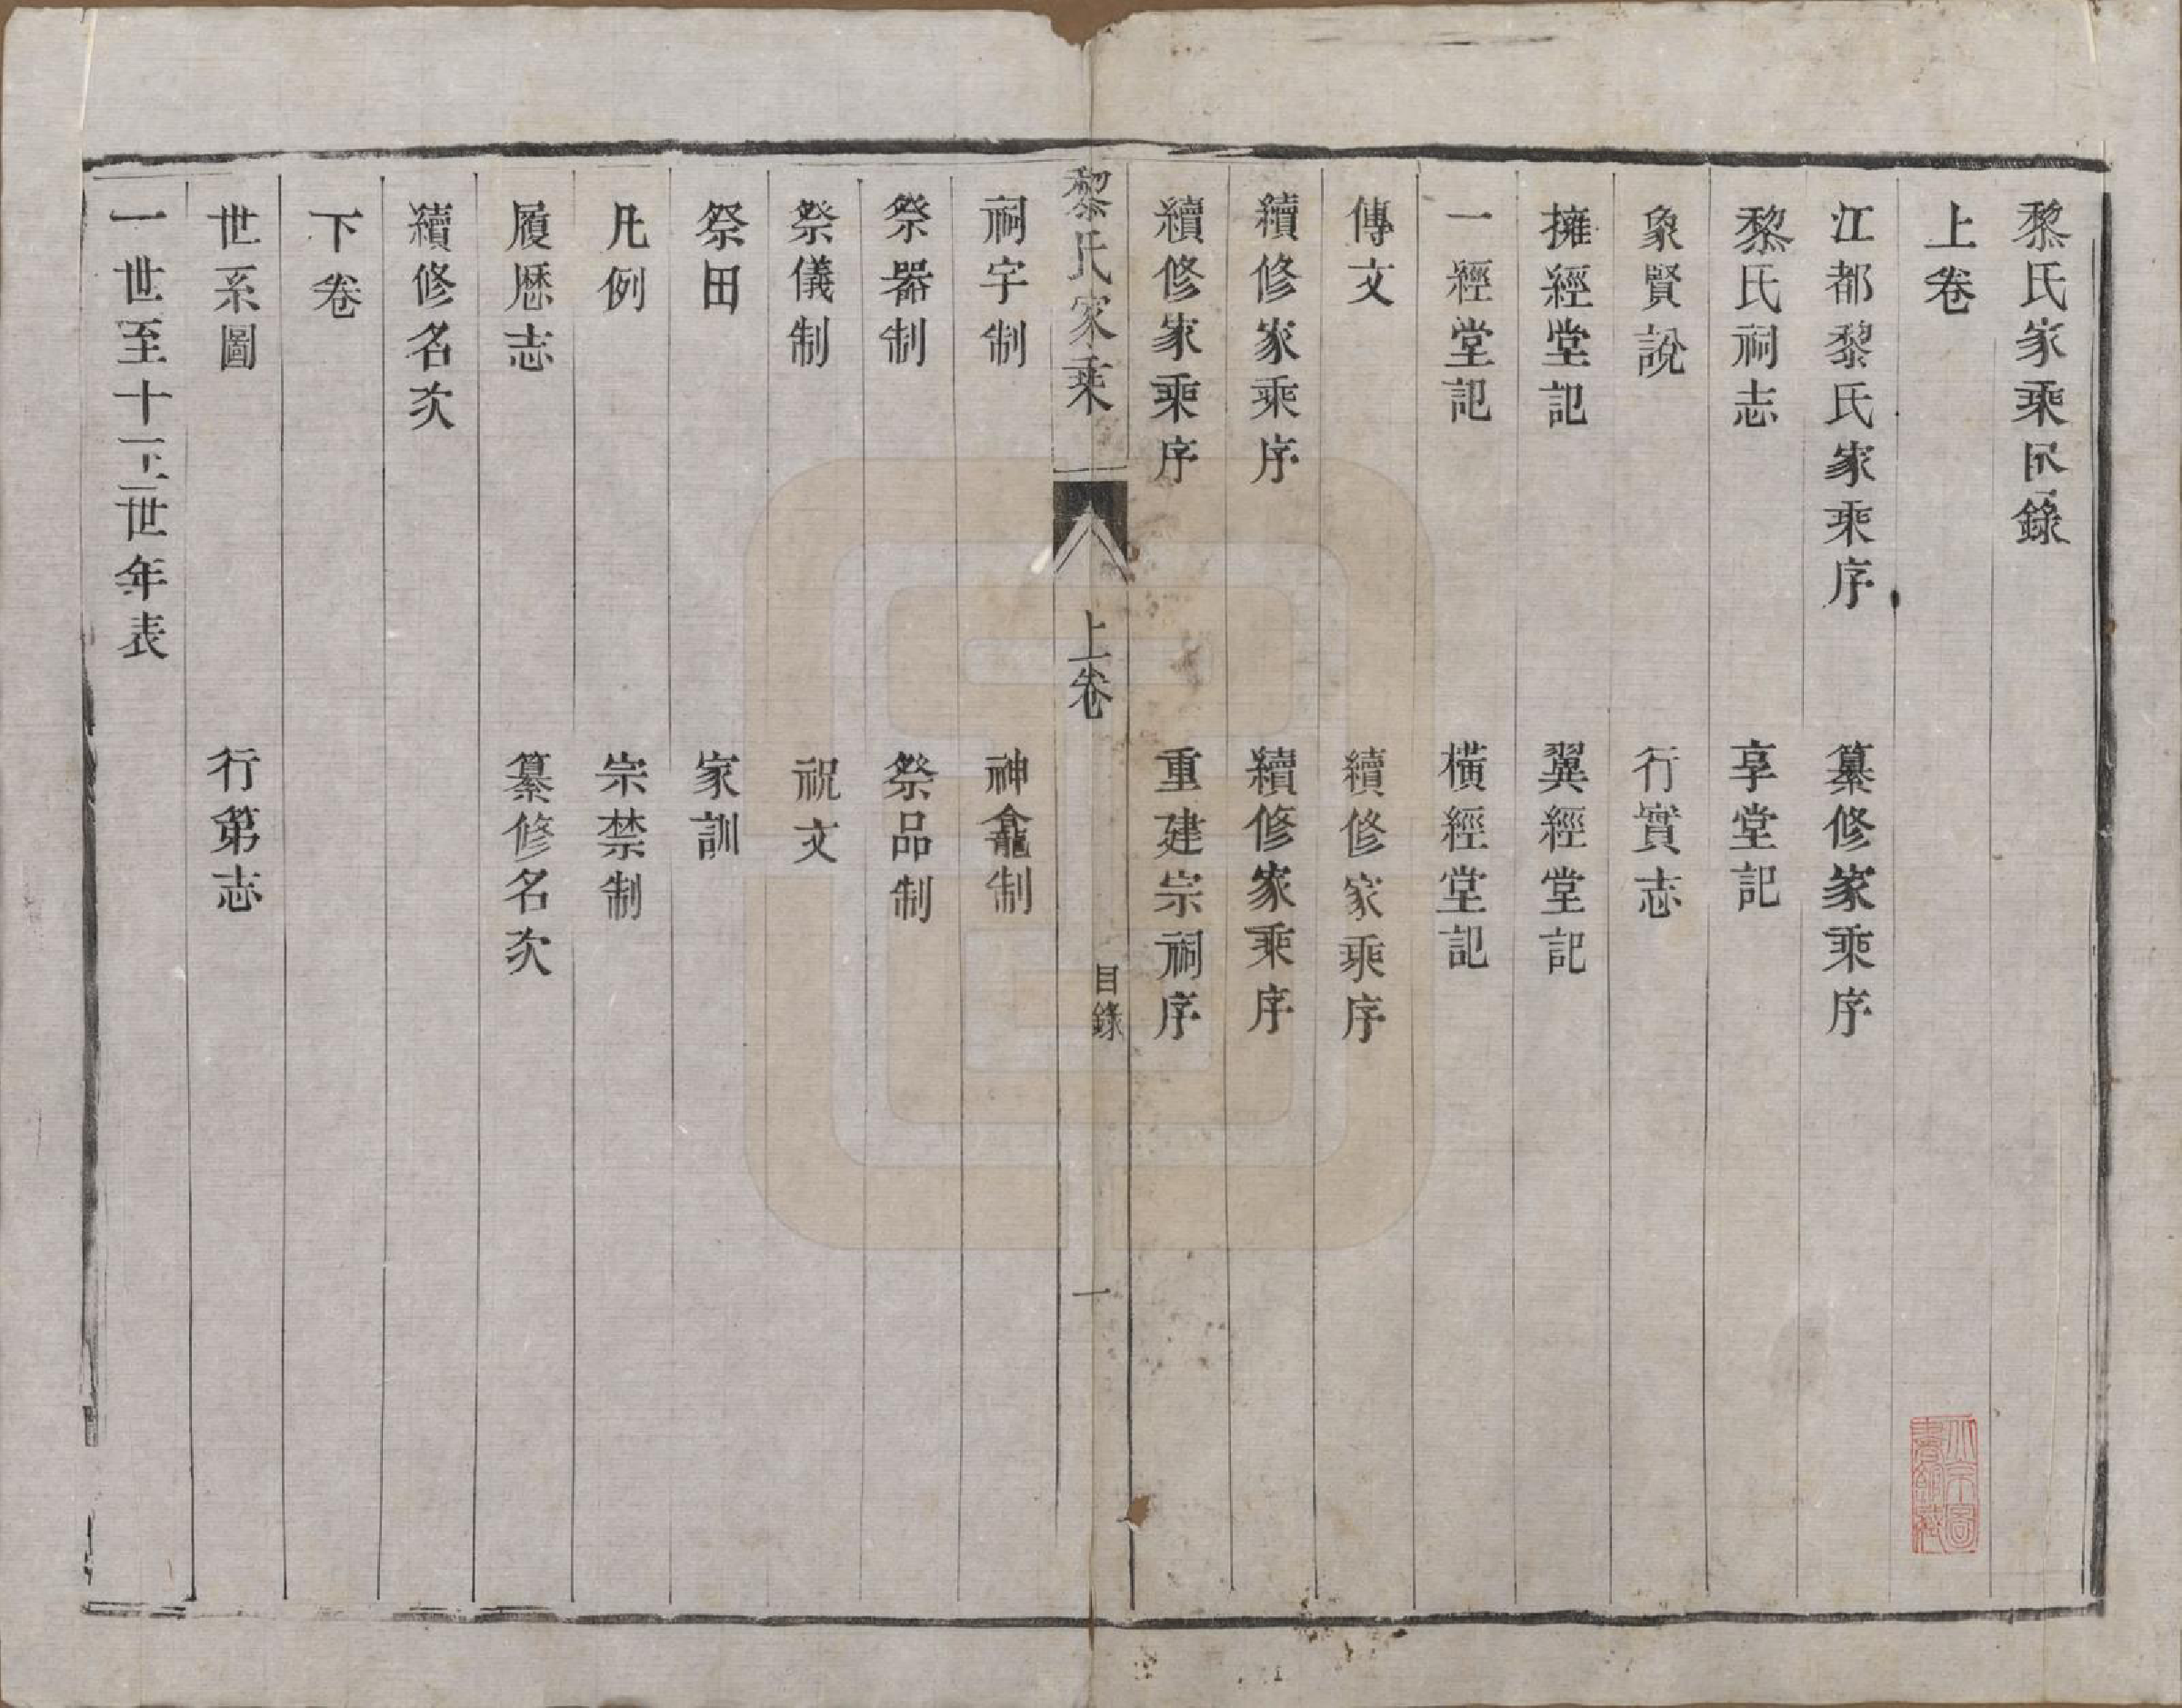 黎氏家乘目錄
上卷
江都黎氏家乘序　纂修家乘序
黎氏祠志　享堂記
象賢說　行實志
擁經堂記　翼經堂記
一經堂記　橫經堂記
傳文　續修家乘序
續修家乘序　續修家乘序
續修家乘序　重建宗祠序
黎氏家乘　上卷　目錄　一
祠宇制　神龕制
祭器制　祭品制
祭儀制　祝文
祭田　家訓
凡例　宗禁制
履歷志　纂修名次
續修名次
下卷
世系圖　行第志
一世至十二世年表